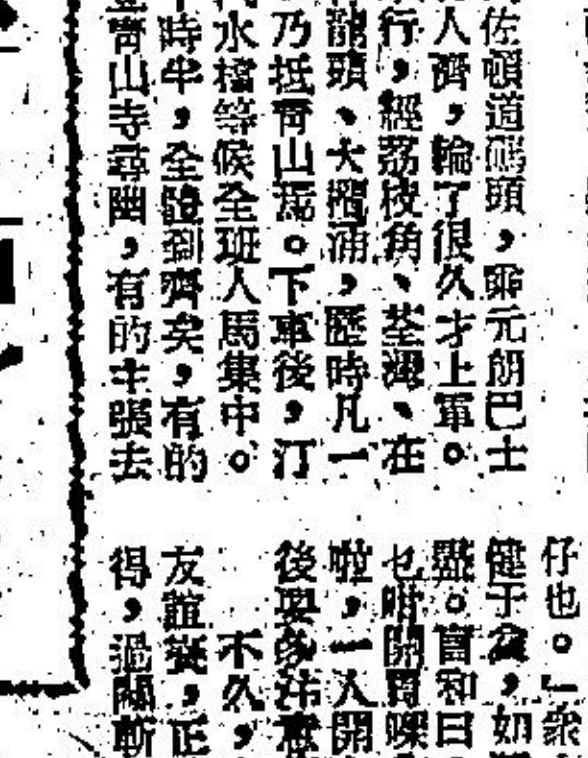 佐頓道碼頭，乘元朗巴士
人齊，輪了很久才上車。
行，經荔枝角、荃灣、在
龍頭、大欖涌，歷時凡一
乃抵青山焉。下車後，汀
水檔等候全班人馬集中。
時半，全體到齊矣，有的
青山寺尋幽，有的主張去
仔也。」衆
健于食，如
盤。宵和曰
乜咁開胃㗎
啦，一人開
後要多注意
不久，
友誼賽，正
得，過隔斬